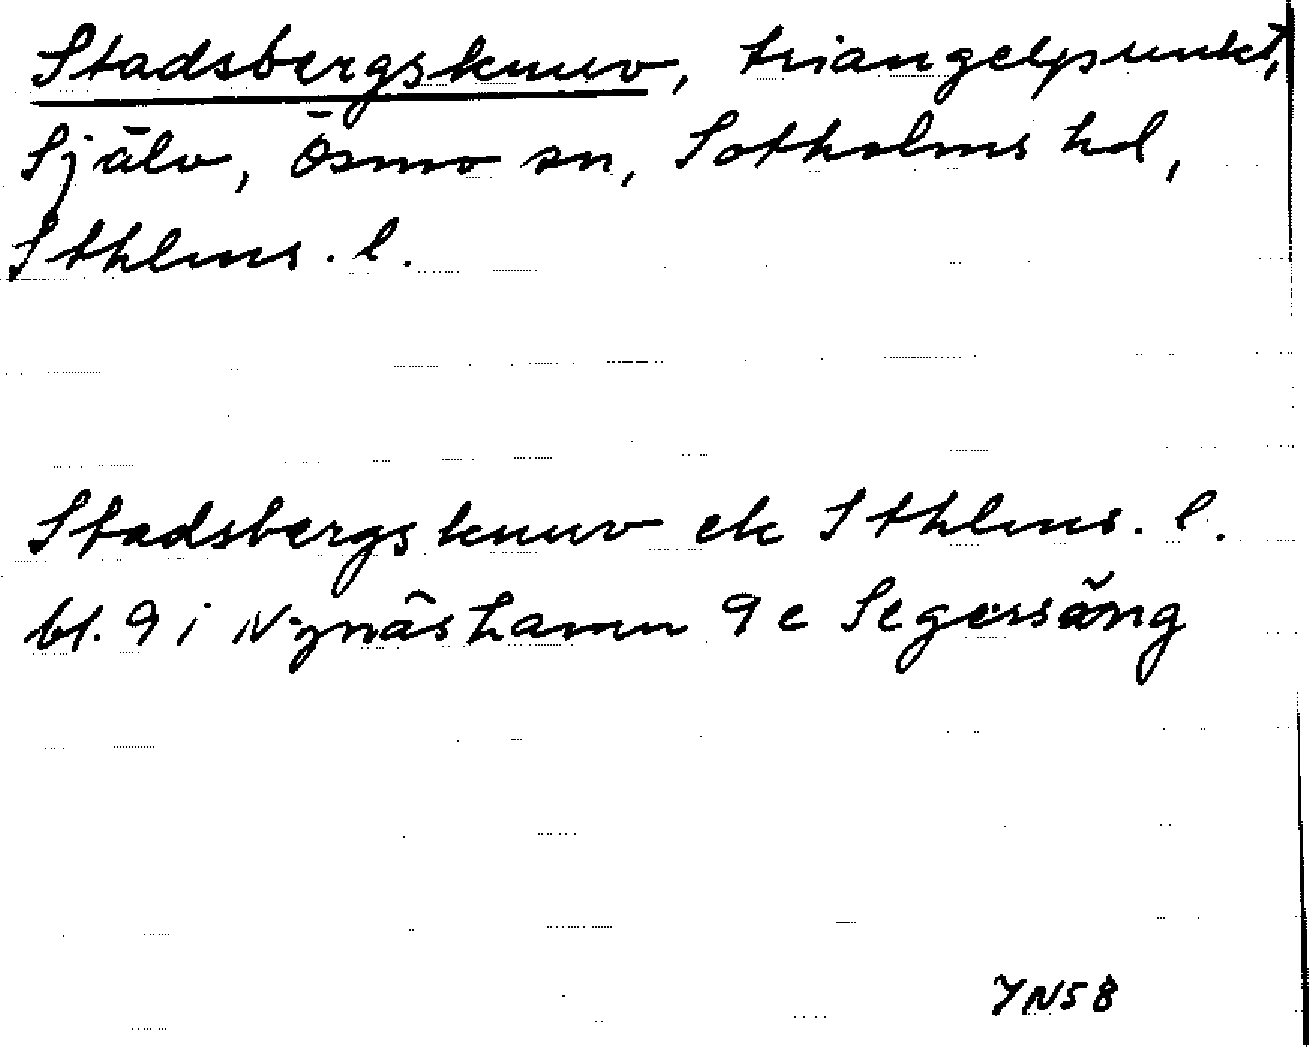 Stadsbergsknuv, triangelpunkt,
Själv, Ösmo sn, Sotholms hd,
Sthlms. l.
Stadsbergsknuv ek Sthlms. l.
bl. 9 i Nynäshamn 9 e Segersäng
YN58